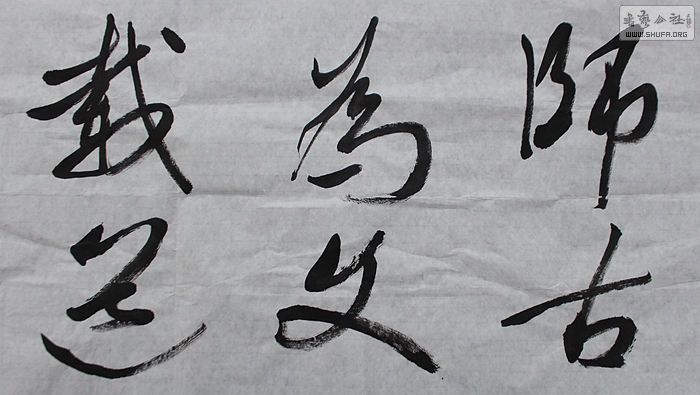 師古
為文
載道
书艺公社
WWW.SHUFA.ORG